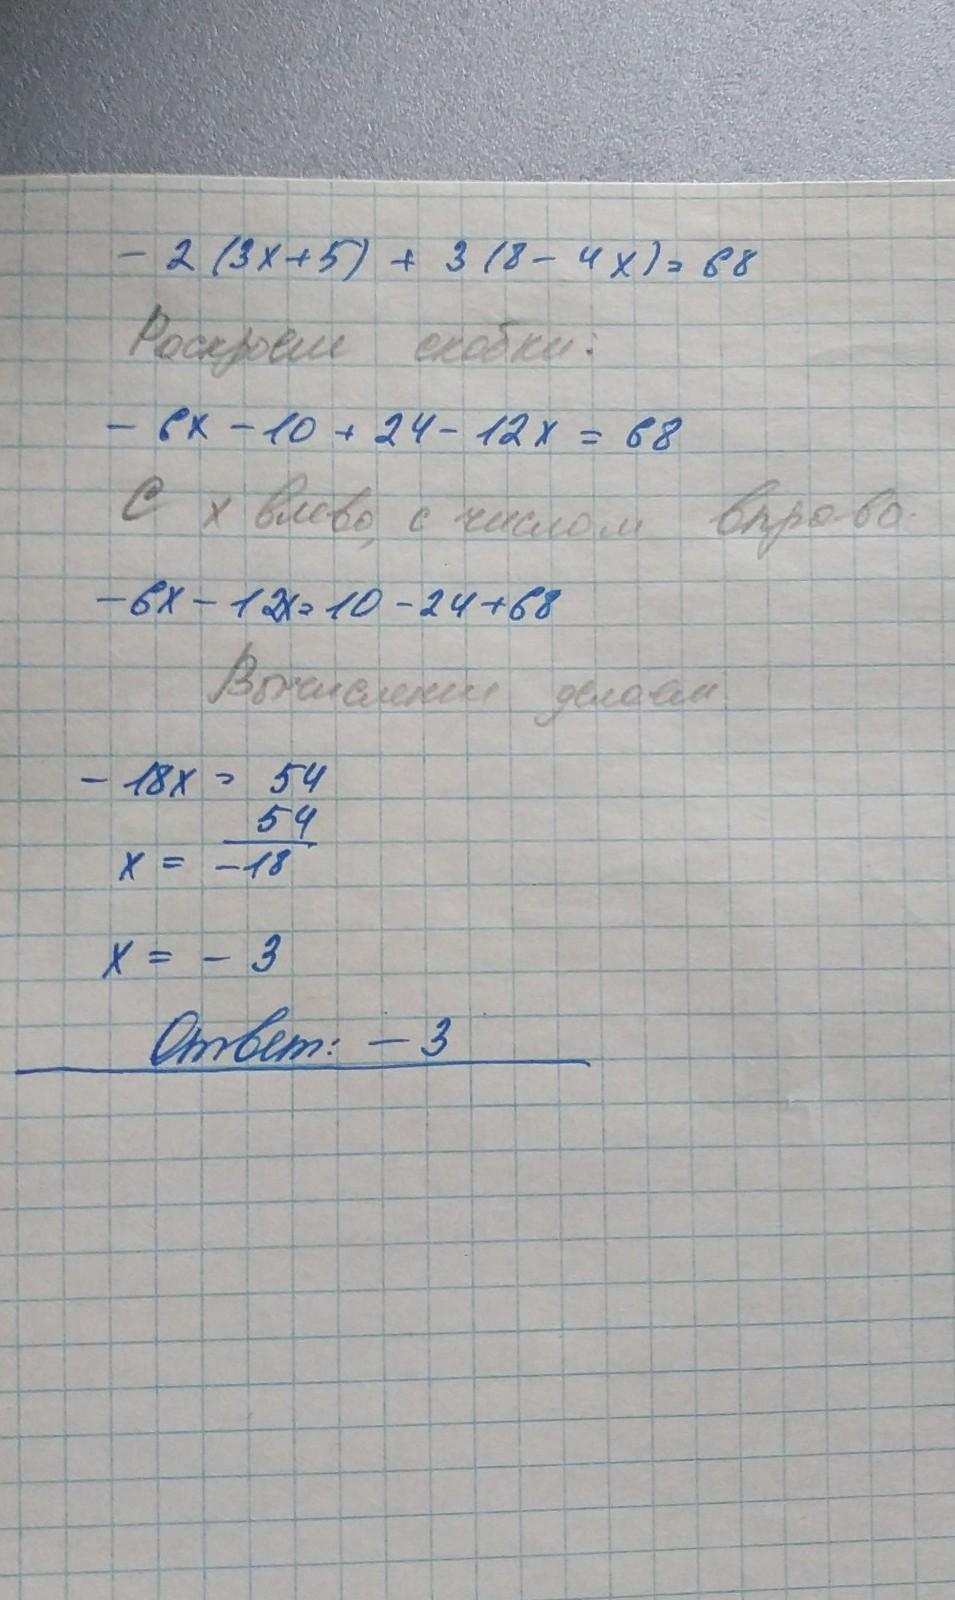 - 2 (3x+5) + 3 (8 - 4x) = 68
Раскроем скобки:
- 6x - 10 + 24 - 12x = 68
С x влево, с числом вправо.
- 6x - 12x = 10 - 24 + 68
Вычисления делаем
- 18x = 54
54
x = -18
x = - 3
Ответ: - 3